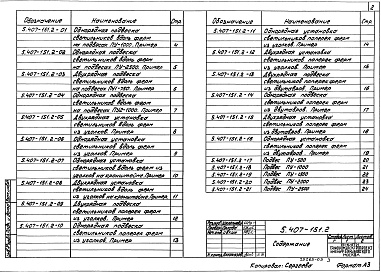 2
Обозначение Наименование Стр.
5.407-151.2-01 Однорядная подвеска
светильников вдоль ферм
на подвесках ПУ-1000. Пример 4
5.407-151.2-02 Однорядная подвеска
светильников вдоль ферм
на подвесках ПУ-2000. Пример 5
5.407-151.2-03 Двухрядная подвеска
светильников вдоль ферм
на подвесах ПУ-750. Пример 6
5.407-151.2-04 Однорядная подвеска
светильников вдоль ферм
Пример 7
5.407-151.2-05 Двухрядная установка
светильников вдоль ферм
из уголков. Пример 8
5.407-151.2-06 Однорядная установка
светильников вдоль ферм
из уголков. Пример 9
5.407-151.2-07 Однорядная установка
светильников вдоль ферм из
уголков на кронштейне. Пример 10
5.407-151.2-08 Двухрядная установка
светильников вдоль ферм
из уголков на кронштейне. Пример 11
5.407-151.2-09 Однорядная подвеска
светильников поперек ферм
из уголков. Пример 12
5.407-151.2-10 Однорядная подвеска
светильников поперек ферм
из уголков. Пример 13
Обозначение Наименование Стр.
5.407-151.2-11 Однорядная установка
светильников поперек ферм
из уголков. Пример 14
5.407-151.2-12 Двухрядная установка
светильников поперек ферм
из уголков. Пример 15
5.407-151.2-13 Двухрядная подвеска
светильников поперек ферм
из двутавров. Пример 16
5.407-151.2-14 Однорядная подвеска
светильников поперек ферм
из двутавров. Пример 17
5.407-151.2-15 Двухрядная установка
светильников поперек ферм
из двутавров. Пример 18
5.407-151.2-16 Однорядная установка
светильников поперек ферм
из двутавров. Пример 19
5.407-151.2-17 Подвес ПУ-500 20
5.407-151.2-18 Подвес ПУ-1000 21
5.407-151.2-19 Подвес ПУ-1500 22
5.407-151.2-20 Подвес ПУ-2000 23
5.407-151.2-21 Подвес ПУ-2500 24
5.407-151.2
Содержание
МОСКВА
Копировал: Сергеева Формат А3